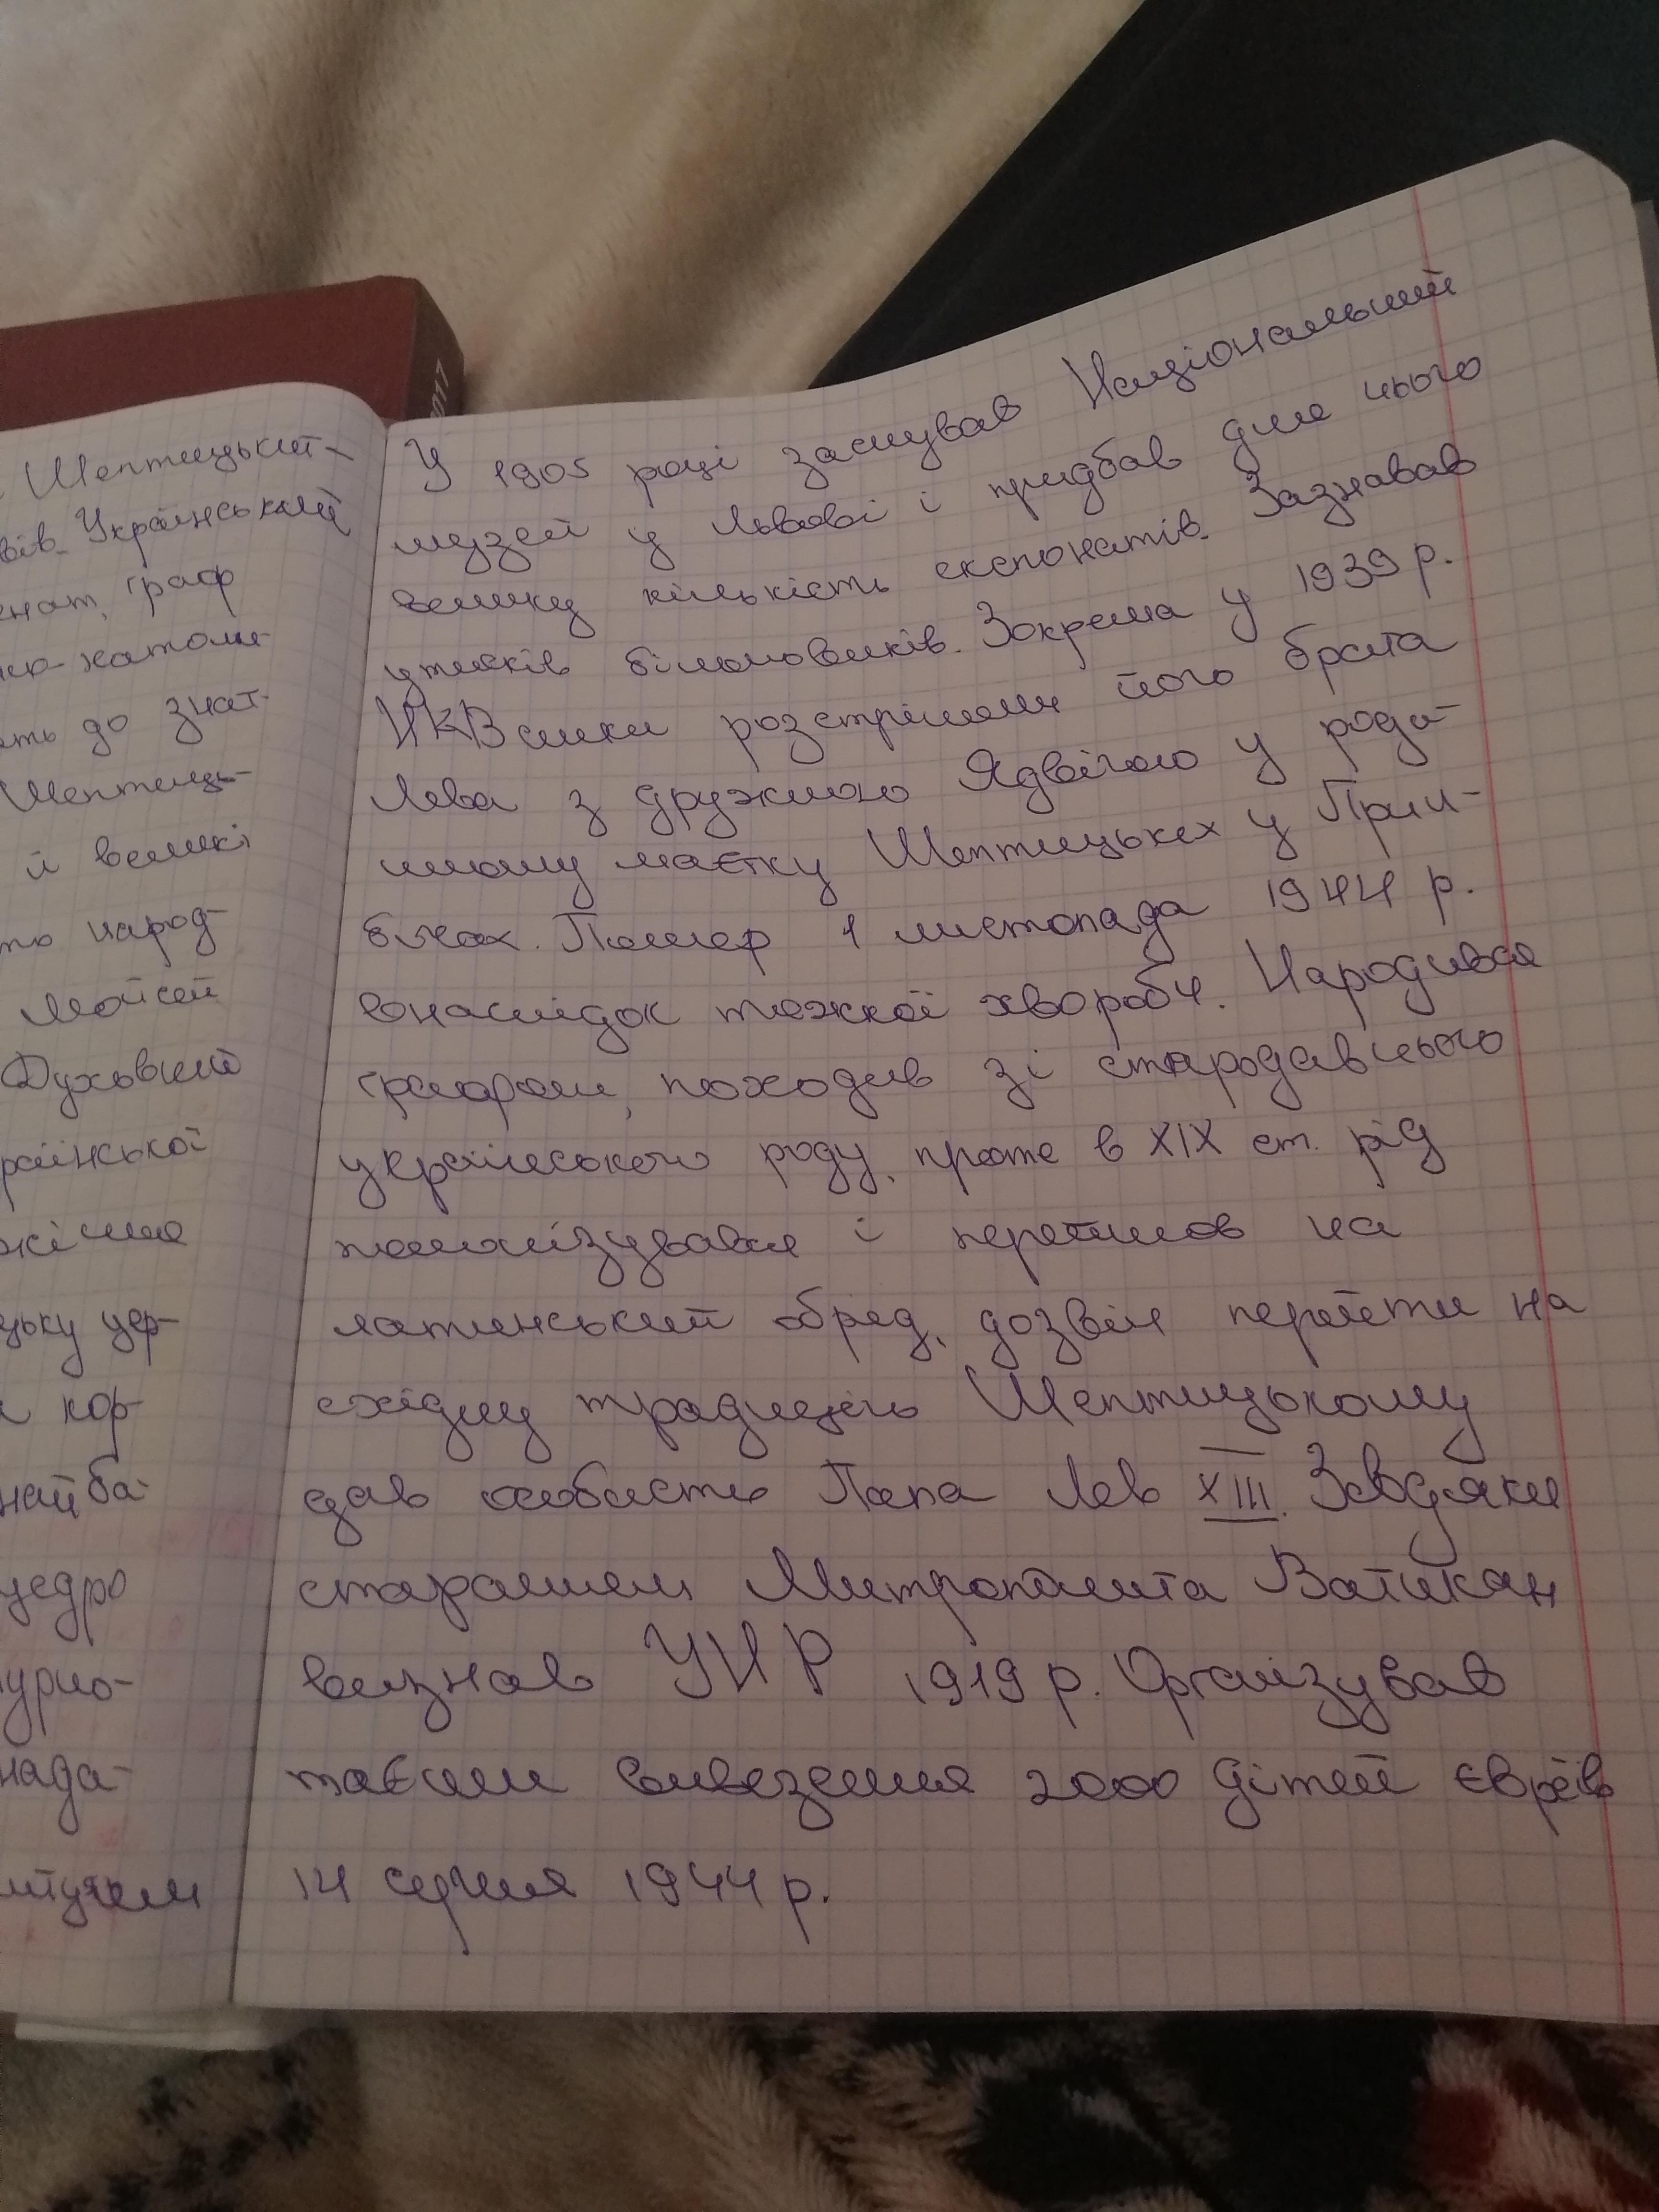 Шептицький-
вів. Український
нат, граф
ко-католи-
ть до знат-
Шептиць-
й великі
то народ-
Мойсей
Духовний
раїнської
жіння
цьку цер-
и кор-
найба-
щедро
нада-
У 1905 році заснував Національний
музей у Львові і придбав для нього
велику кількість експонатів. Зазнавав
утисків більшовиків. Зокрема у 1939 р.
НКВсники розстріляли його брата
Лева з дружиною Ядвігою у роди-
нному маєтку Шептицьких у Прил-
бичах. Помер 1 листопада 1944 р.
внаслідок тяжкої хвороби. Народився
графом, походив зі стародавнього
українського роду, проте в XIX ст. рід
полонізувався і перейшов на
латинський обряд, дозвіл перейти на
східну традицію Шептицькому
дав особисто Папа Лев XIII. Завдяки
старанням Митрополита Ватикан
визнав УНР 1919 р. Організував
таємн вивезення 2000 дітей євреїв
14 серпня 1944 р.